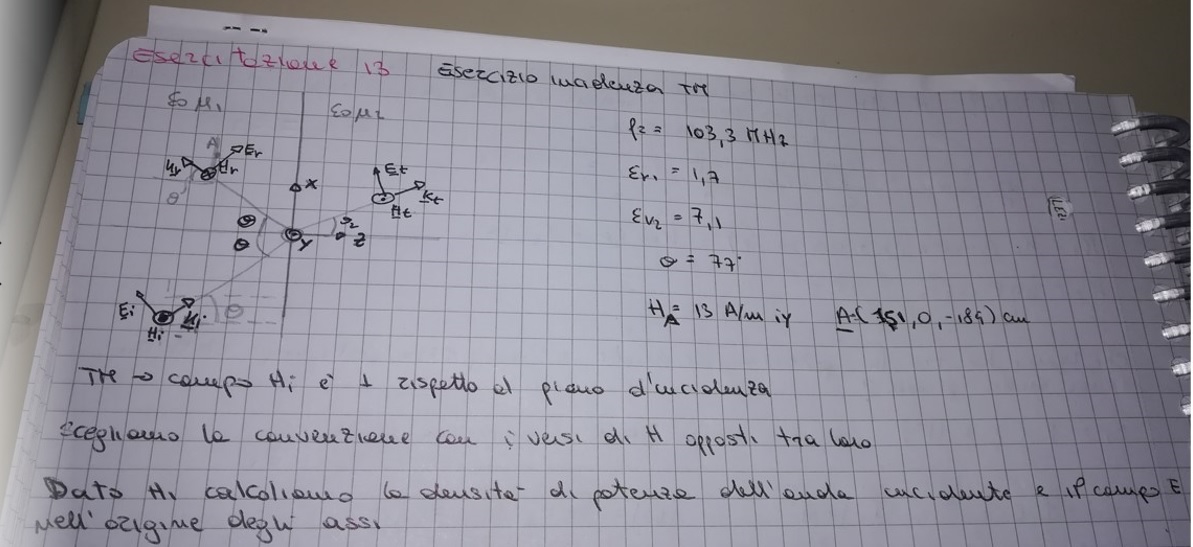 Esercitazione 13 Esercizio incidenza TM
ε0 μ1 ε0 μ2
fz = 103,3 MHz
A Er
Kr Hr
θ
X
Et
Kt
Ht
εr1 = 1,7
εr2 = 7,1
θ
θ
Y
θ2
Z
θ = 77°
Ei
Ki
Hi
θ
HA = 13 A/m iy A=(151,0,-184) cm
TM → campo Hi è ⊥ rispetto al piano d'incidenza
Scegliamo la convenzione con i versi di H opposti tra loro
Dato Hi calcoliamo la densità di potenza dell'onda incidente e il campo E
nell'origine degli assi